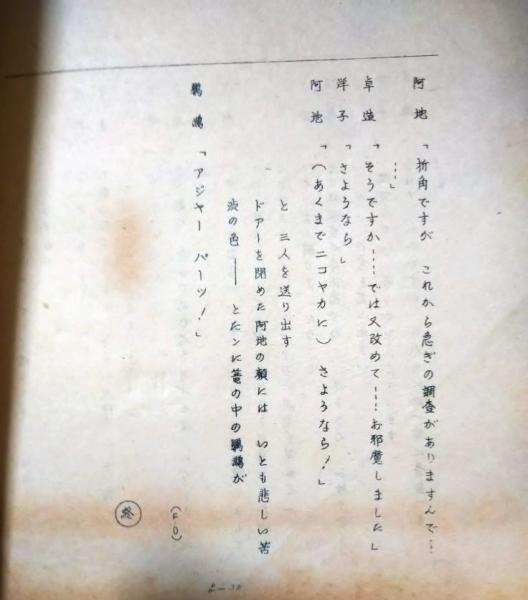 阿地「折角ですが　これから急ぎの調査がありますんで……
……」
卓造「そうですか……では又改めて……お邪魔しました」
洋子「さようなら」
阿地「（あくまでニコヤカに）　さようなら！」
と　三人を送り出す
ドアーを閉めた阿地の顔には　いとも悲しい苦
渋の色――　とたンに篭の中の鸚鵡が
鸚鵡「アジャー　パーッ！」
（F・O）
終